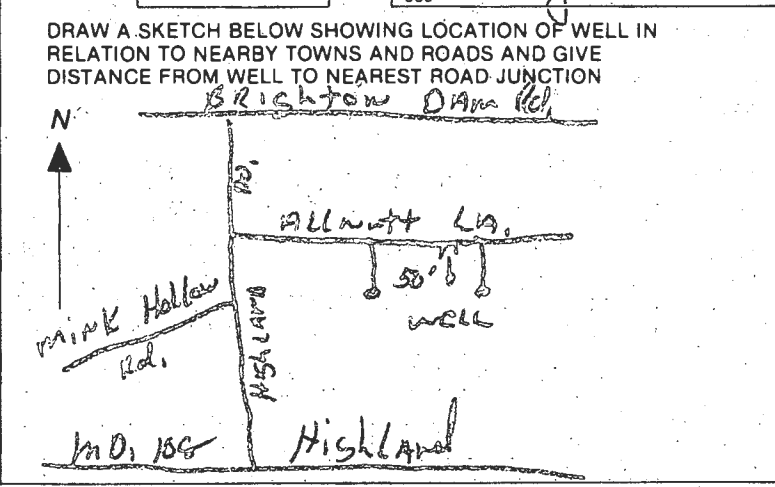 DRAW A SKETCH BELOW SHOWING LOCATION OF WELL IN
RELATION TO NEARBY TOWNS AND ROADS AND GIVE
DISTANCE FROM WELL TO NEAREST ROAD JUNCTION
BRIghtow DAm Rd.
N
RD.
Allnutt LN.
50'
WELL
MINK Hollow
Rd.
HIGHLAND
MD. 108
Highland